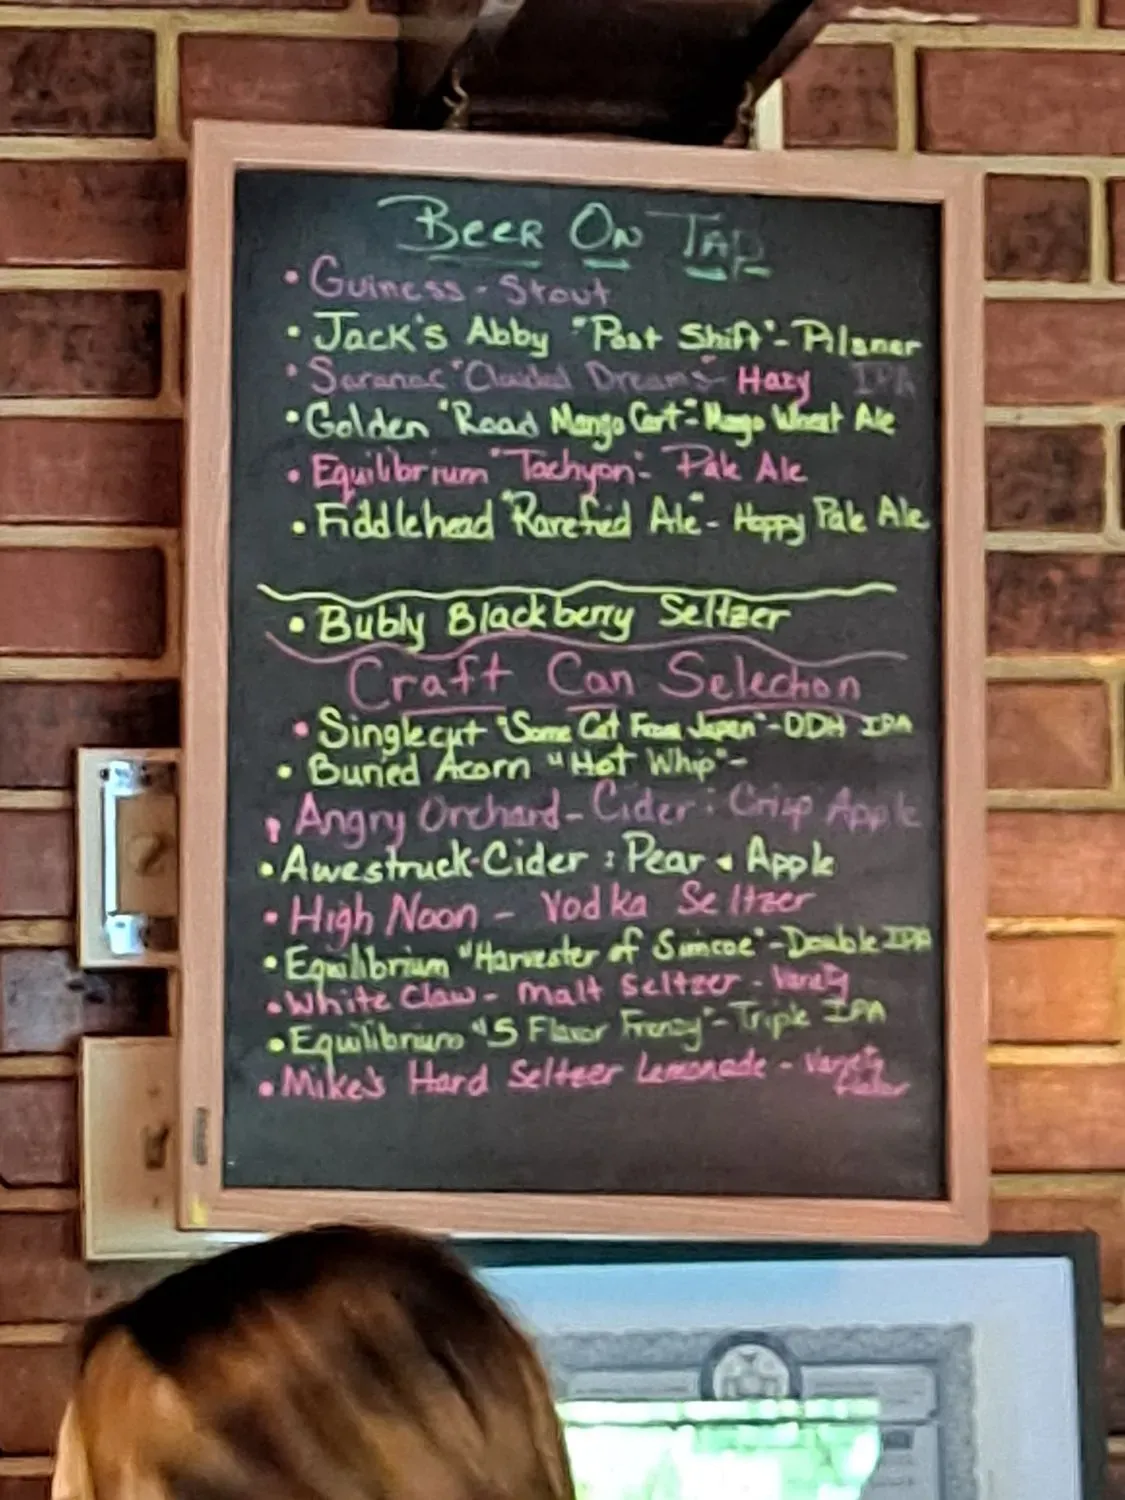 Beer On Tap
• Guiness - Stout
• Jack's Abby "Post Shift" - Pilsner
• Saranac "Clouded Dreams" - Hazy IPA
• Golden "Road Mango Cart" - Mango Wheat Ale
• Equilibrium "Tachyon" - Pale Ale
• Fiddlehead "Rarefied Ale" - Hoppy Pale Ale
• Bubly Blackberry Seltzer
Craft Can Selection
• Singlecut "Some Cat From Japan" - DDH IPA
• Buried Acorn "Hot Whip" -
• Angry Orchard - Cider : Crisp Apple
• Awestruck - Cider : Pear & Apple
• High Noon - Vodka Seltzer
• Equilibrium "Harvester of Simcoe" - Double IPA
• White Claw - Malt Seltzer - Variety
• Equilibrium "5 Flavor Frenzy" - Triple IPA
• Mike's Hard Seltzer Lemonade - Variety